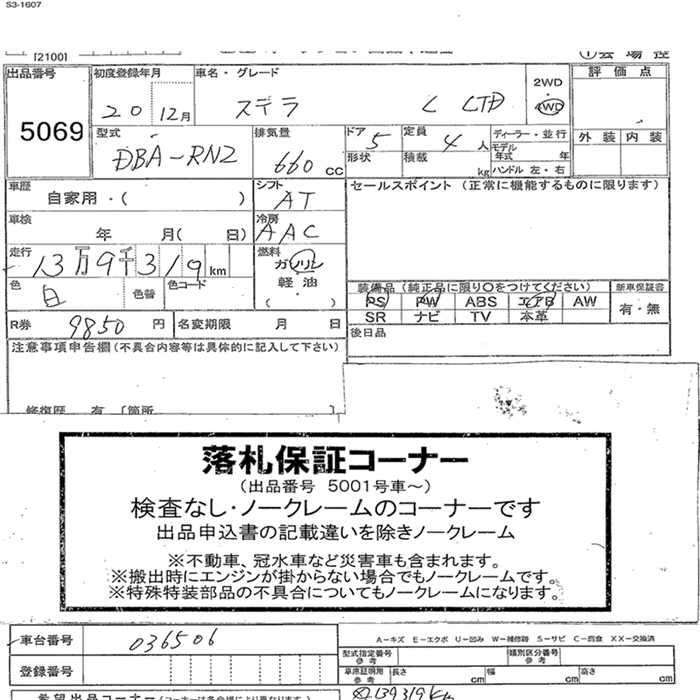 S3-1607
[2100]
①会場控
出品番号 5069
初度登録年月 20 12月
車名・グレード ステラ L LTD
2WD
・
4WD
評価点
外装 内装
型式 DBA-RN2
排気量 660 cc
ドア 5
形状
定員 4人
積載 kg
ディーラー・並行
モデル年式 年
ハンドル 左・右
車歴 自家用・( )
シフト AT
セールスポイント (正常に機能するものに限ります)
車検 年 月( 日)
冷房 AAC
走行 13万9千319km
燃料 ガソリン
軽油
( )
色 白 色替 色コード
装備品 (純正品に限り○をつけてください)
PS PW ABS エアB AW
SR ナビ TV 本革
新車保証書 有・無
R券 9850円
名変期限 月 日
後日品
注意事項申告欄(不具合内容等は具体的に記入して下さい)
修復歴 有 [箇所
落札保証コーナー
(出品番号 5001号車〜)
検査なし・ノークレームのコーナーです
出品申込書の記載違いを除きノークレーム
※不動車、冠水車など災害車も含まれます。
※搬出時にエンジンが掛からない場合でもノークレームです。
※特殊特装部品の不具合についてもノークレームになります。
車台番号 036506
A-キズ E-エクボ U-凹み W-補修跡 S-サビ C-腐食 XX-交換済
型式指定番号 参考
類別区分番号 参考
登録番号
車庫証明用 参考 長さ cm 幅 cm 高さ cm
希望出品コーナー(コーナーは各会場により異なります)
139319km